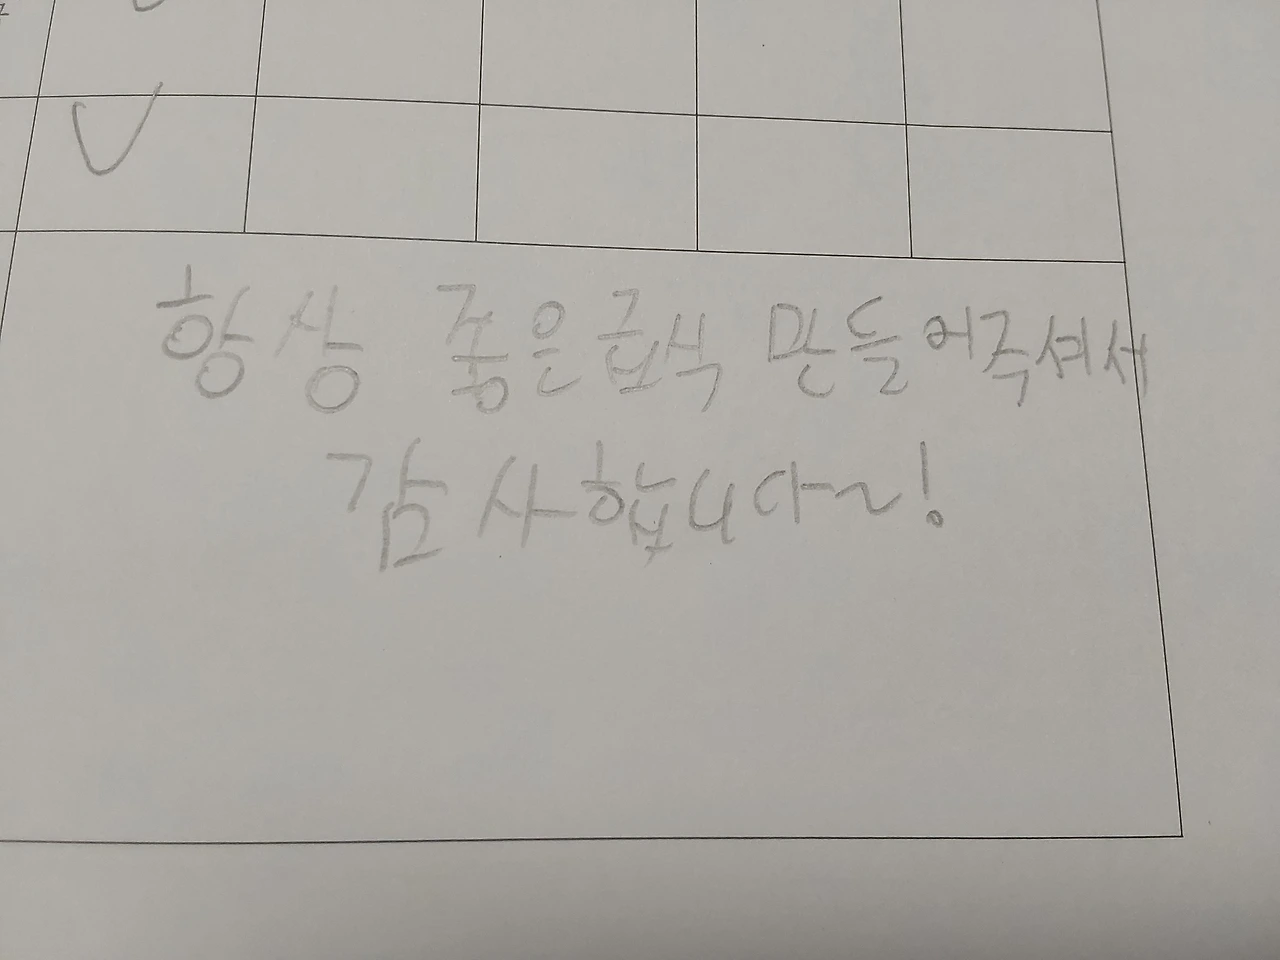 항상 좋은 급식 만들어주셔서
감사합니다~!